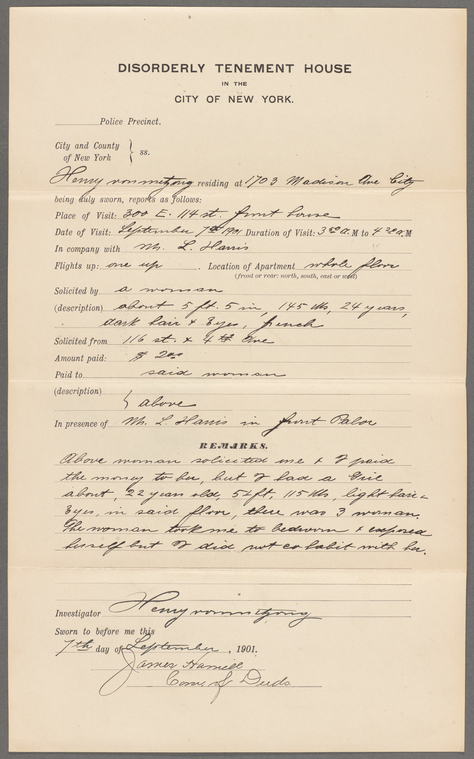 DISORDERLY TENEMENT HOUSE
IN THE
CITY OF NEW YORK.
Police Precinct.
City and County
of New York } ss.
Henry residing at 1703 Madison Ave City
being duly sworn, reports as follows:
Place of Visit: 300 E. 114 st. front house
Date of Visit: September 7th 1901 Duration of Visit: 3 30 A.M to 4 30 A.M
In company with Mr. L. Harris
Flights up: one up. Location of Apartment whole floor
(front or rear: north, south, east or west)
Solicited by a woman
(description) about 5 ft. 5 in, 145 lbs, 24 years,
dark hair & Eyes, french
Solicited from 116 st. & 4th Ave
Amount paid: $ 2.00
Paid to said woman
(description)
} above
In presence of Mr. L. Harris in front Palor
REMARKS.
Above woman solicited me & I paid
the money to her, but I had a Girl
about, 22 years old, 5½ ft, 115 lbs, light hair &
Eyes, in said floor, there was 3 woman.
The woman took me to bedroom & exposed
herself but I did not cohabit with her.
Investigator Henry
Sworn to before me this
7th day of September, 1901.
James Hamill
Com. of Deeds